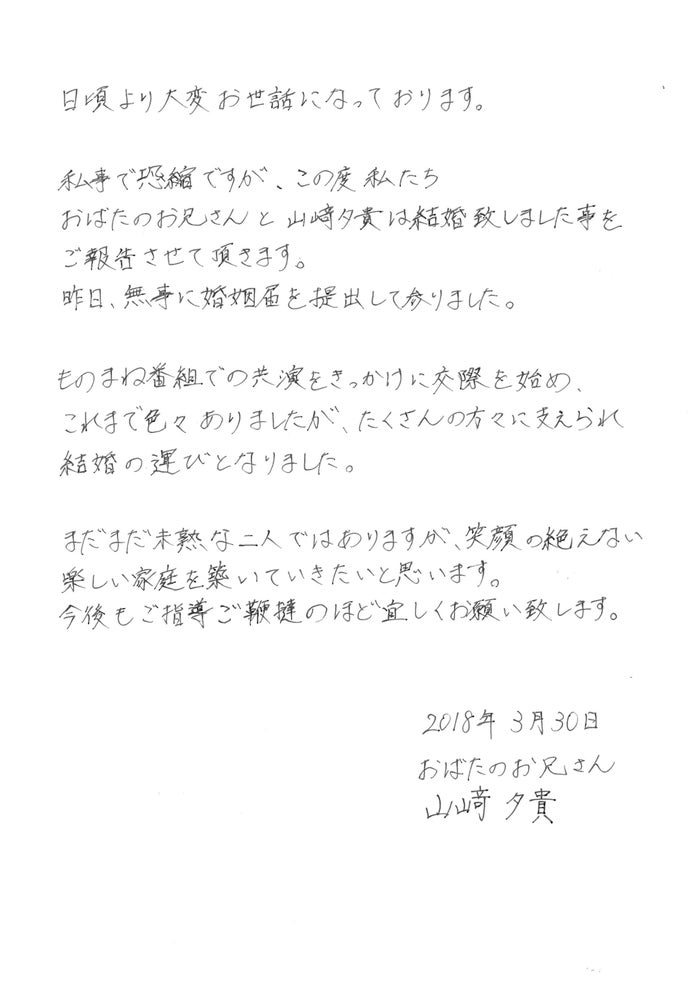 日頃より大変お世話になっております。
私事で恐縮ですが、この度私たち
おばたのお兄さんと山﨑夕貴は結婚致しました事を
ご報告させて頂きます。
昨日、無事に婚姻届を提出して参りました。
ものまね番組での共演をきっかけに交際を始め、
これまで色々ありましたが、たくさんの方々に支えられ
結婚の運びとなりました。
まだまだ未熟な二人ではありますが、笑顔の絶えない
楽しい家庭を築いていきたいと思います。
今後もご指導ご鞭撻のほど宜しくお願い致します。
2018年 3月30日
おばたのお兄さん
山﨑 夕貴